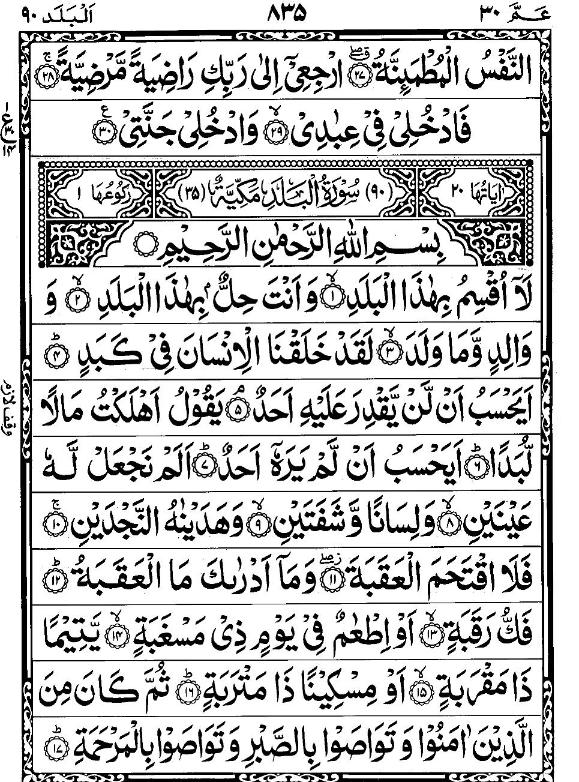 عَمَّ ٣٠ ٨٣٥ اَلْبَلَد ٩٠
النَّفْسُ الْمُطْمَئِنَّةُ ۝٢٧ ارْجِعِیْۤ اِلٰی رَبِّكِ رَاضِیَةً مَّرْضِیَّةً ۝٢٨
فَادْخُلِیْ فِیْ عِبٰدِیْ ۝٢٩ وَادْخُلِیْ جَنَّتِیْ ۝٣٠
اٰیَاتُهَا ٢٠ (٩٠) سُوْرَةُ الْبَلَدِ مَكِّیَّةٌ (٣٥) رُكُوْعُهَا ١
بِسْمِ اللّٰهِ الرَّحْمٰنِ الرَّحِیْمِ
لَاۤ اُقْسِمُ بِهٰذَا الْبَلَدِ ۝١ وَ اَنْتَ حِلٌّۢ بِهٰذَا الْبَلَدِ ۝٢ وَ
وَالِدٍ وَّمَا وَلَدَ ۝٣ لَقَدْ خَلَقْنَا الْاِنْسَانَ فِیْ كَبَدٍ ۝٤
اَیَحْسَبُ اَنْ لَّنْ یَّقْدِرَ عَلَیْهِ اَحَدٌ ۝٥ یَقُوْلُ اَهْلَكْتُ مَالًا
لُّبَدًا ۝٦ اَیَحْسَبُ اَنْ لَّمْ یَرَهٗۤ اَحَدٌ ۝٧ اَلَمْ نَجْعَلْ لَّهٗ
عَیْنَیْنِ ۝٨ وَلِسَانًا وَّ شَفَتَیْنِ ۝٩ وَهَدَیْنٰهُ النَّجْدَیْنِ ۝١٠
فَلَا اقْتَحَمَ الْعَقَبَةَ ۝١١ وَمَاۤ اَدْرٰىكَ مَا الْعَقَبَةُ ۝١٢
فَكُّ رَقَبَةٍ ۝١٣ اَوْ اِطْعٰمٌ فِیْ یَوْمٍ ذِیْ مَسْغَبَةٍ ۝١٤ یَّتِیْمًا
ذَا مَقْرَبَةٍ ۝١٥ اَوْ مِسْكِیْنًا ذَا مَتْرَبَةٍ ۝١٦ ثُمَّ كَانَ مِنَ
الَّذِیْنَ اٰمَنُوْا وَ تَوَاصَوْا بِالصَّبْرِ وَ تَوَاصَوْا بِالْمَرْحَمَةِ ۝١٧
وقف لازم